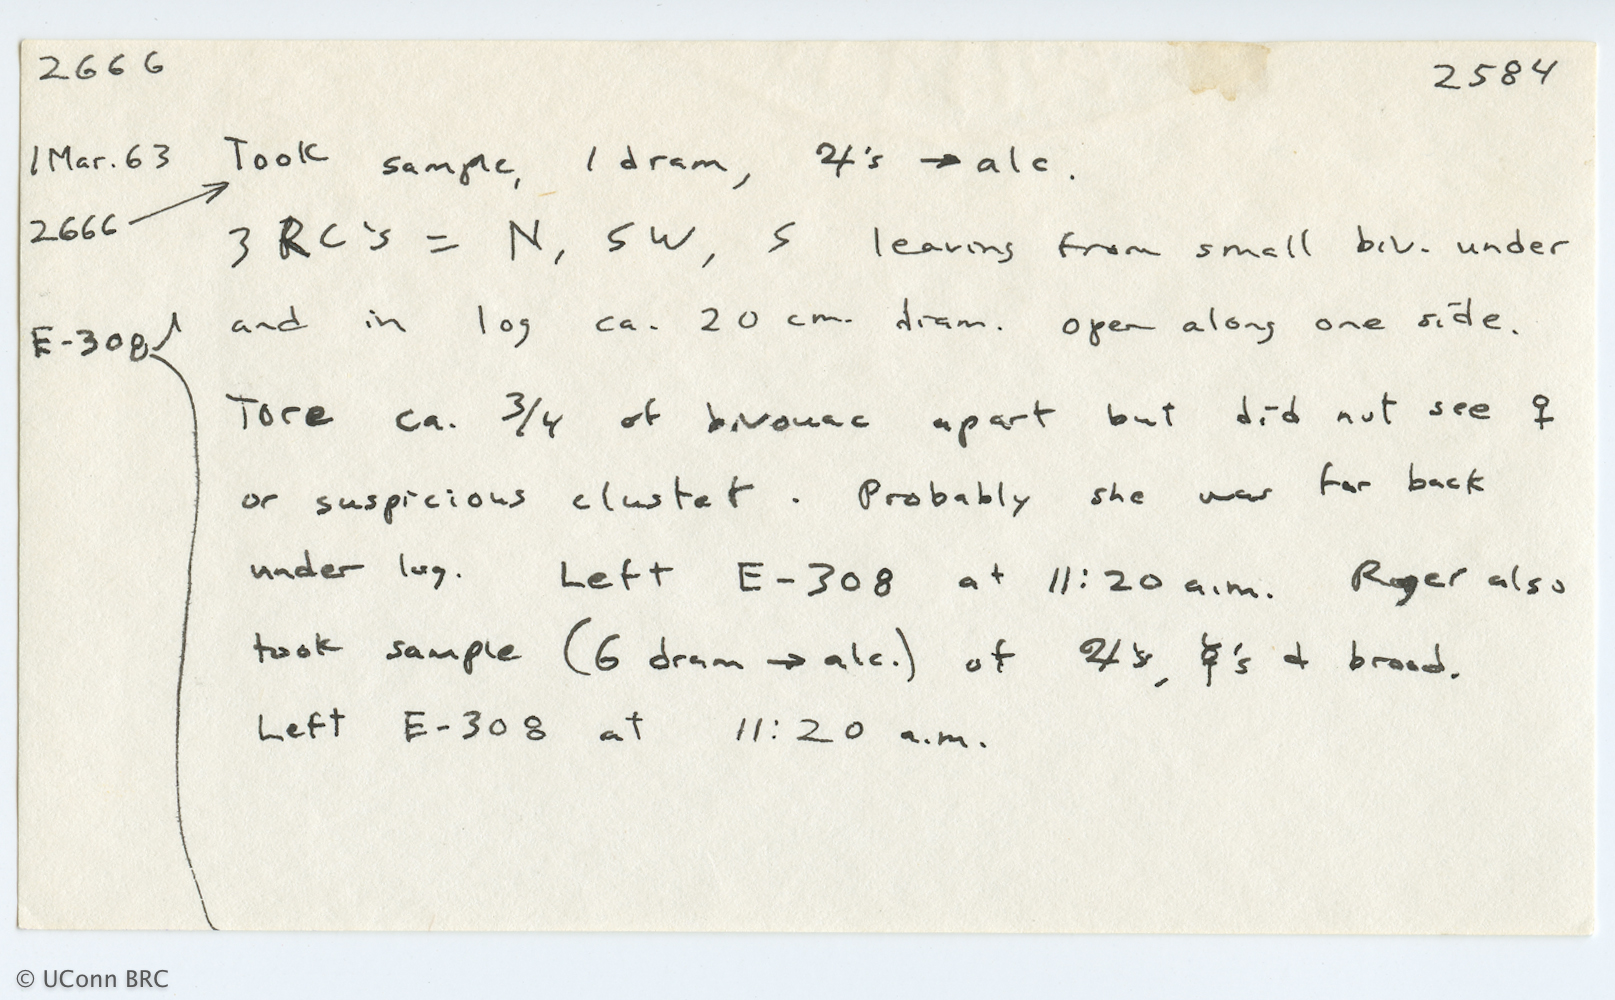 2666
2584
1 Mar. 63 Took sample, 1 dram, ♃'s → alc.
2666 3 RC's = N, SW, S leaving from small biv. under
E-308 and in log ca. 20 cm. diam. open along one side.
Tore ca. 3/4 of bivouac apart but did not see ♀
or suspicious clustet. Probably she was far back
under log. Left E-308 at 11:20 a.m. Roger also
took sample (6 dram → alc.) of ♃'s, ☿'s & brood.
Left E-308 at 11:20 a.m.
© UConn BRC